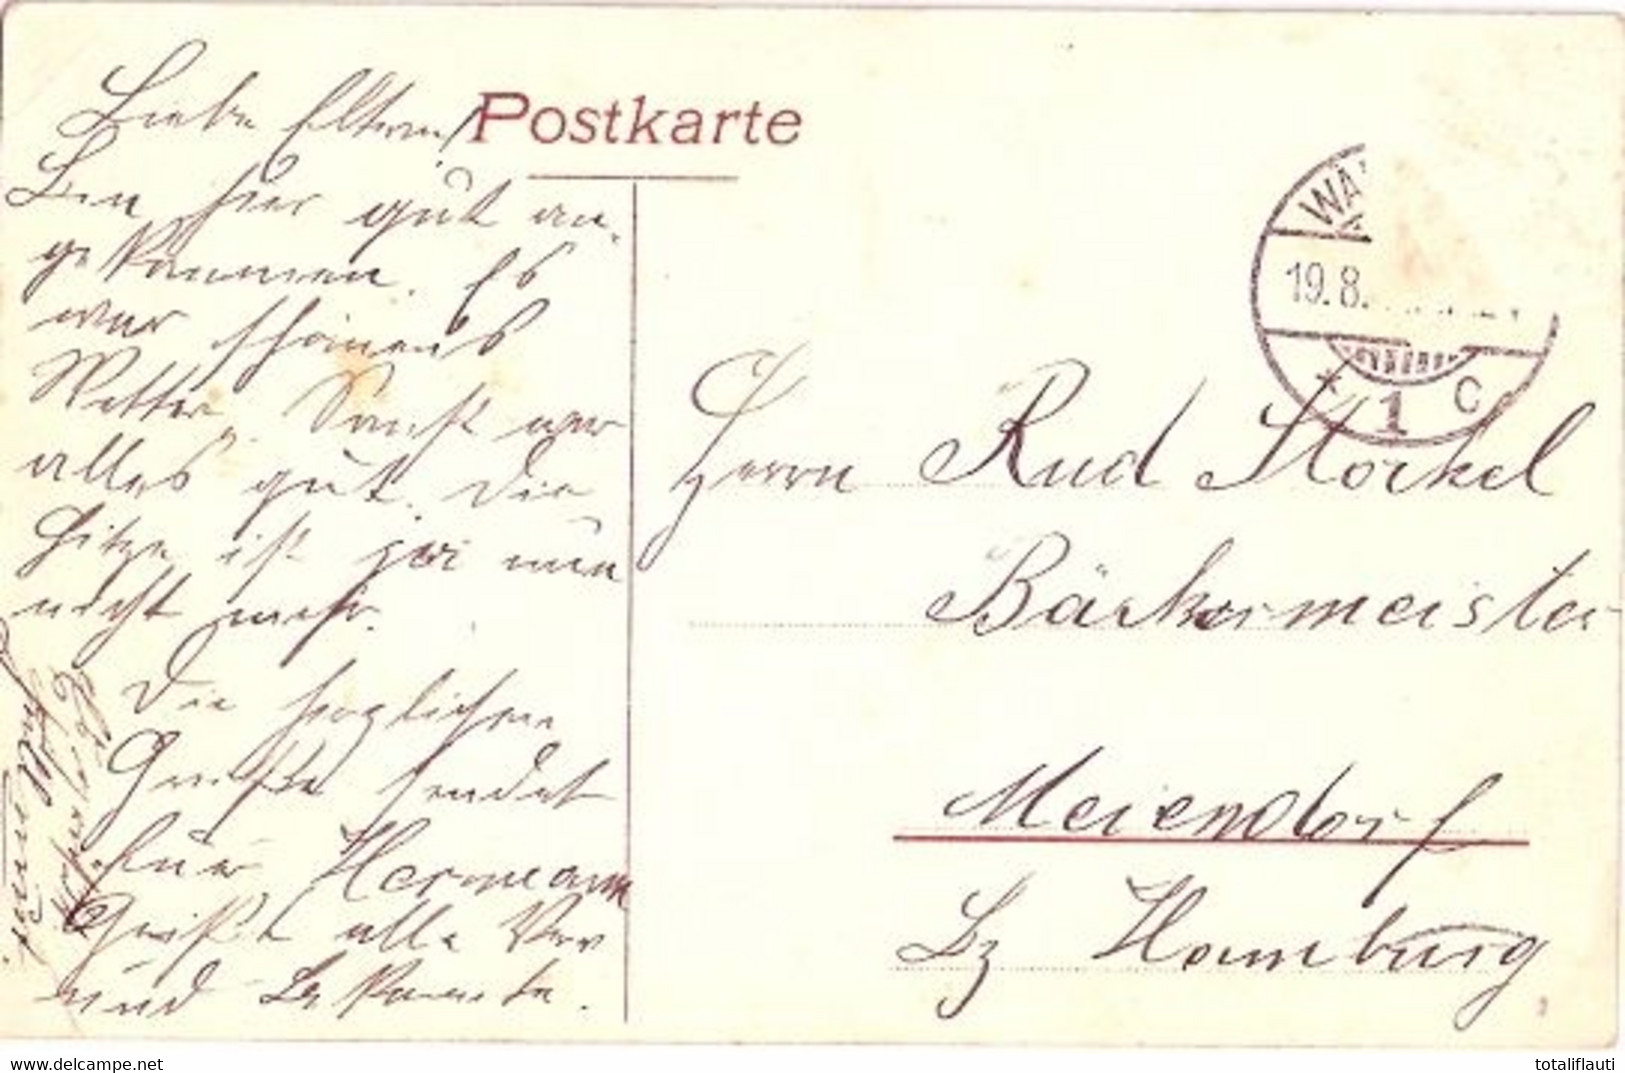 Postkarte
Liebe Eltern!
Bin hier gut an-
gekommen. Es
war schönens
Wetter. Sonst war
alles gut. Die
Hitze ist ja nun
nicht mehr.
Die herzlichen
Grüße sendet
Euer Hermann
Grüßt alle Ver
und Bekannte.
WA
19.8.
* 1 C
Herrn Rud Storkel
Bäckermeister
Meiendorf
Bz Hamburg
delcampe.net
totaliflauti